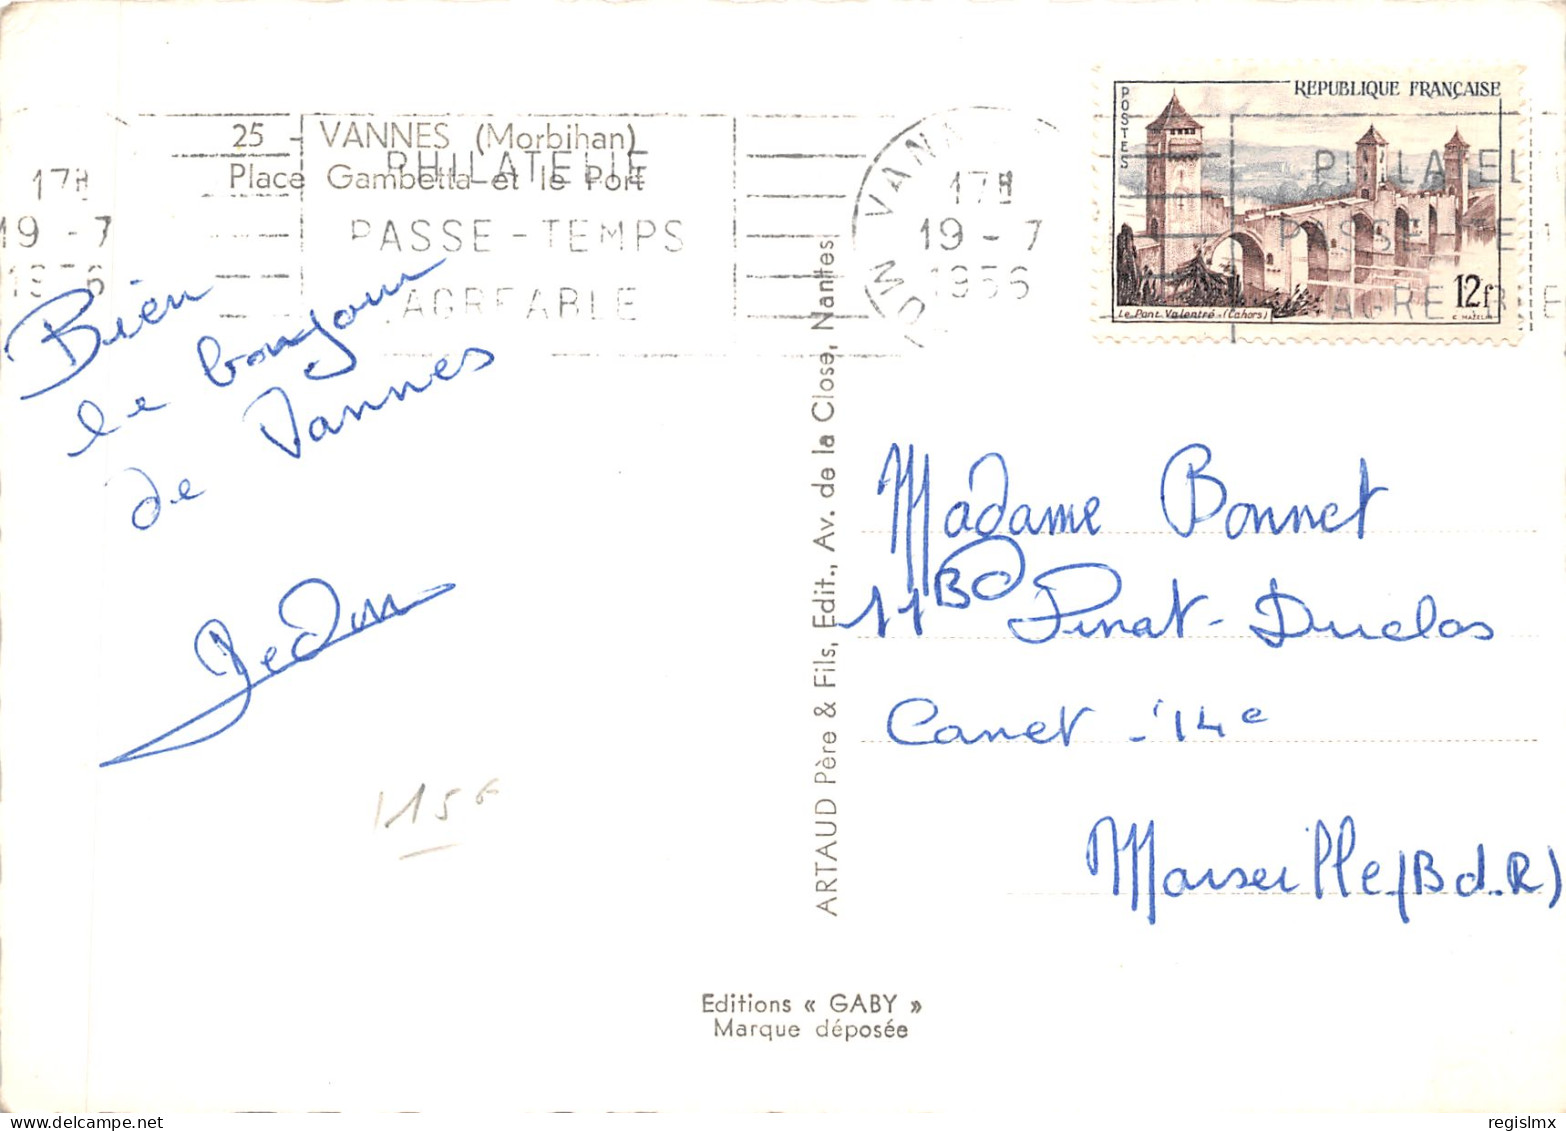 25 - VANNES (Morbihan)
Place Gambetta et le Port
17H
19 - 7
1956
PHILATELIE
PASSE-TEMPS
AGREABLE
VANNES
17H
19 - 7
1956
POSTES
REPUBLIQUE FRANÇAISE
12f
Le Pont Valentré - (Cahors)
C. MAZELIN
PHILATEL
PASSE-TE
AGREABLE
Bien
le bonjour
de Vannes
115F
ARTAUD Père & Fils, Edit., Av. de la Close, Nantes
Madame Bonnet
11 Bd Pinat-Duclos
Canet - 14e
Marseille (B d. R)
Editions « GABY »
Marque déposée
www.delcampe.net
regislmx